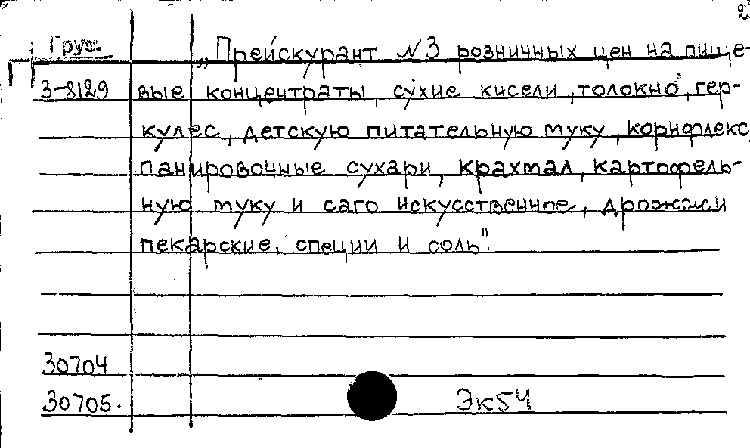 2
Груз. „Прейскурант №3 розничных цен на пище-
3-8129 вые концентраты, сухие кисели, толокно, гер-
кулес, детскую питательную муку, корнфлекс,
панировочные сухари, крахмал, картофель-
ную муку и саго искусственное, дрожжи
пекарские, специи и соль".
30704
30705. Эк54